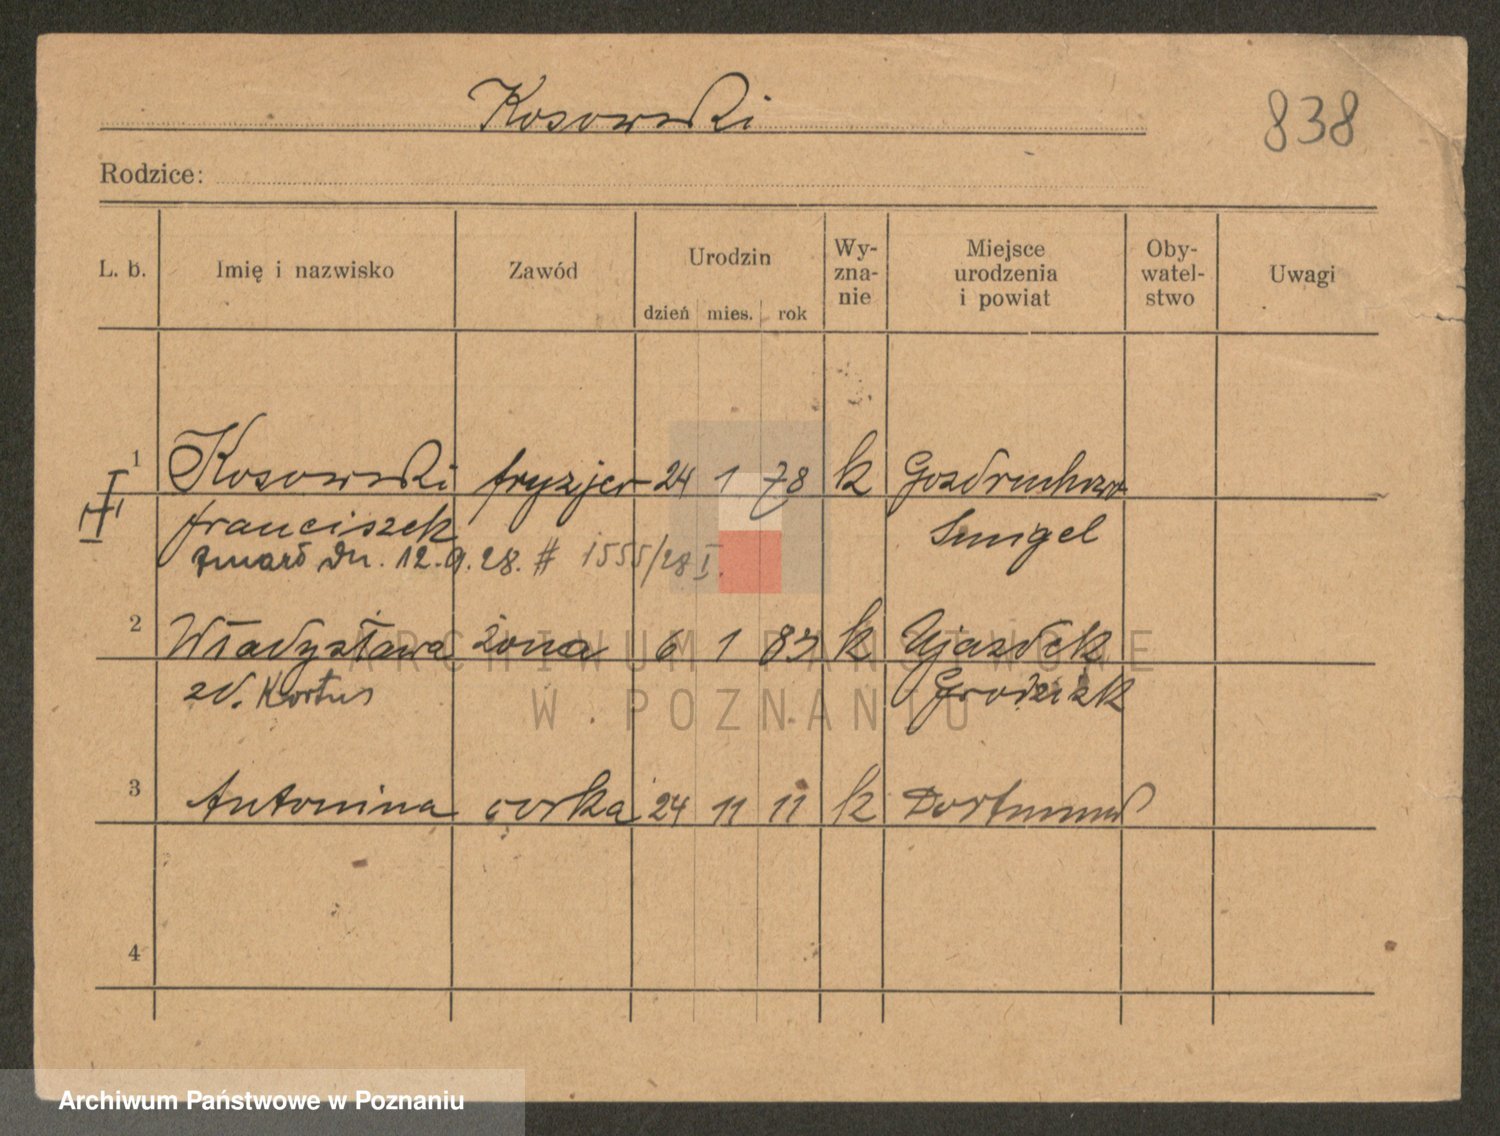 Kosowski
838
Rodzice:
L. b. Imię i nazwisko Zawód Urodzin Wy-zna-nie Miejsce urodzenia i powiat Oby-watel-stwo Uwagi
dzień mies. rok
1 Kosowski fryzjer 24 1 78 k Gozdruchowo
franciszek Smigel
zmarł dn. 12.9.28. # 1555/28 I.
2 Władysława żona 6 1 83 k Ujazdek
zd. Kortus Grodzisk
3 Antonina corka 24 11 11 k Dortmund
4
ARCHIWUM PAŃSTWOWE
W POZNANIU
Archiwum Państwowe w Poznaniu